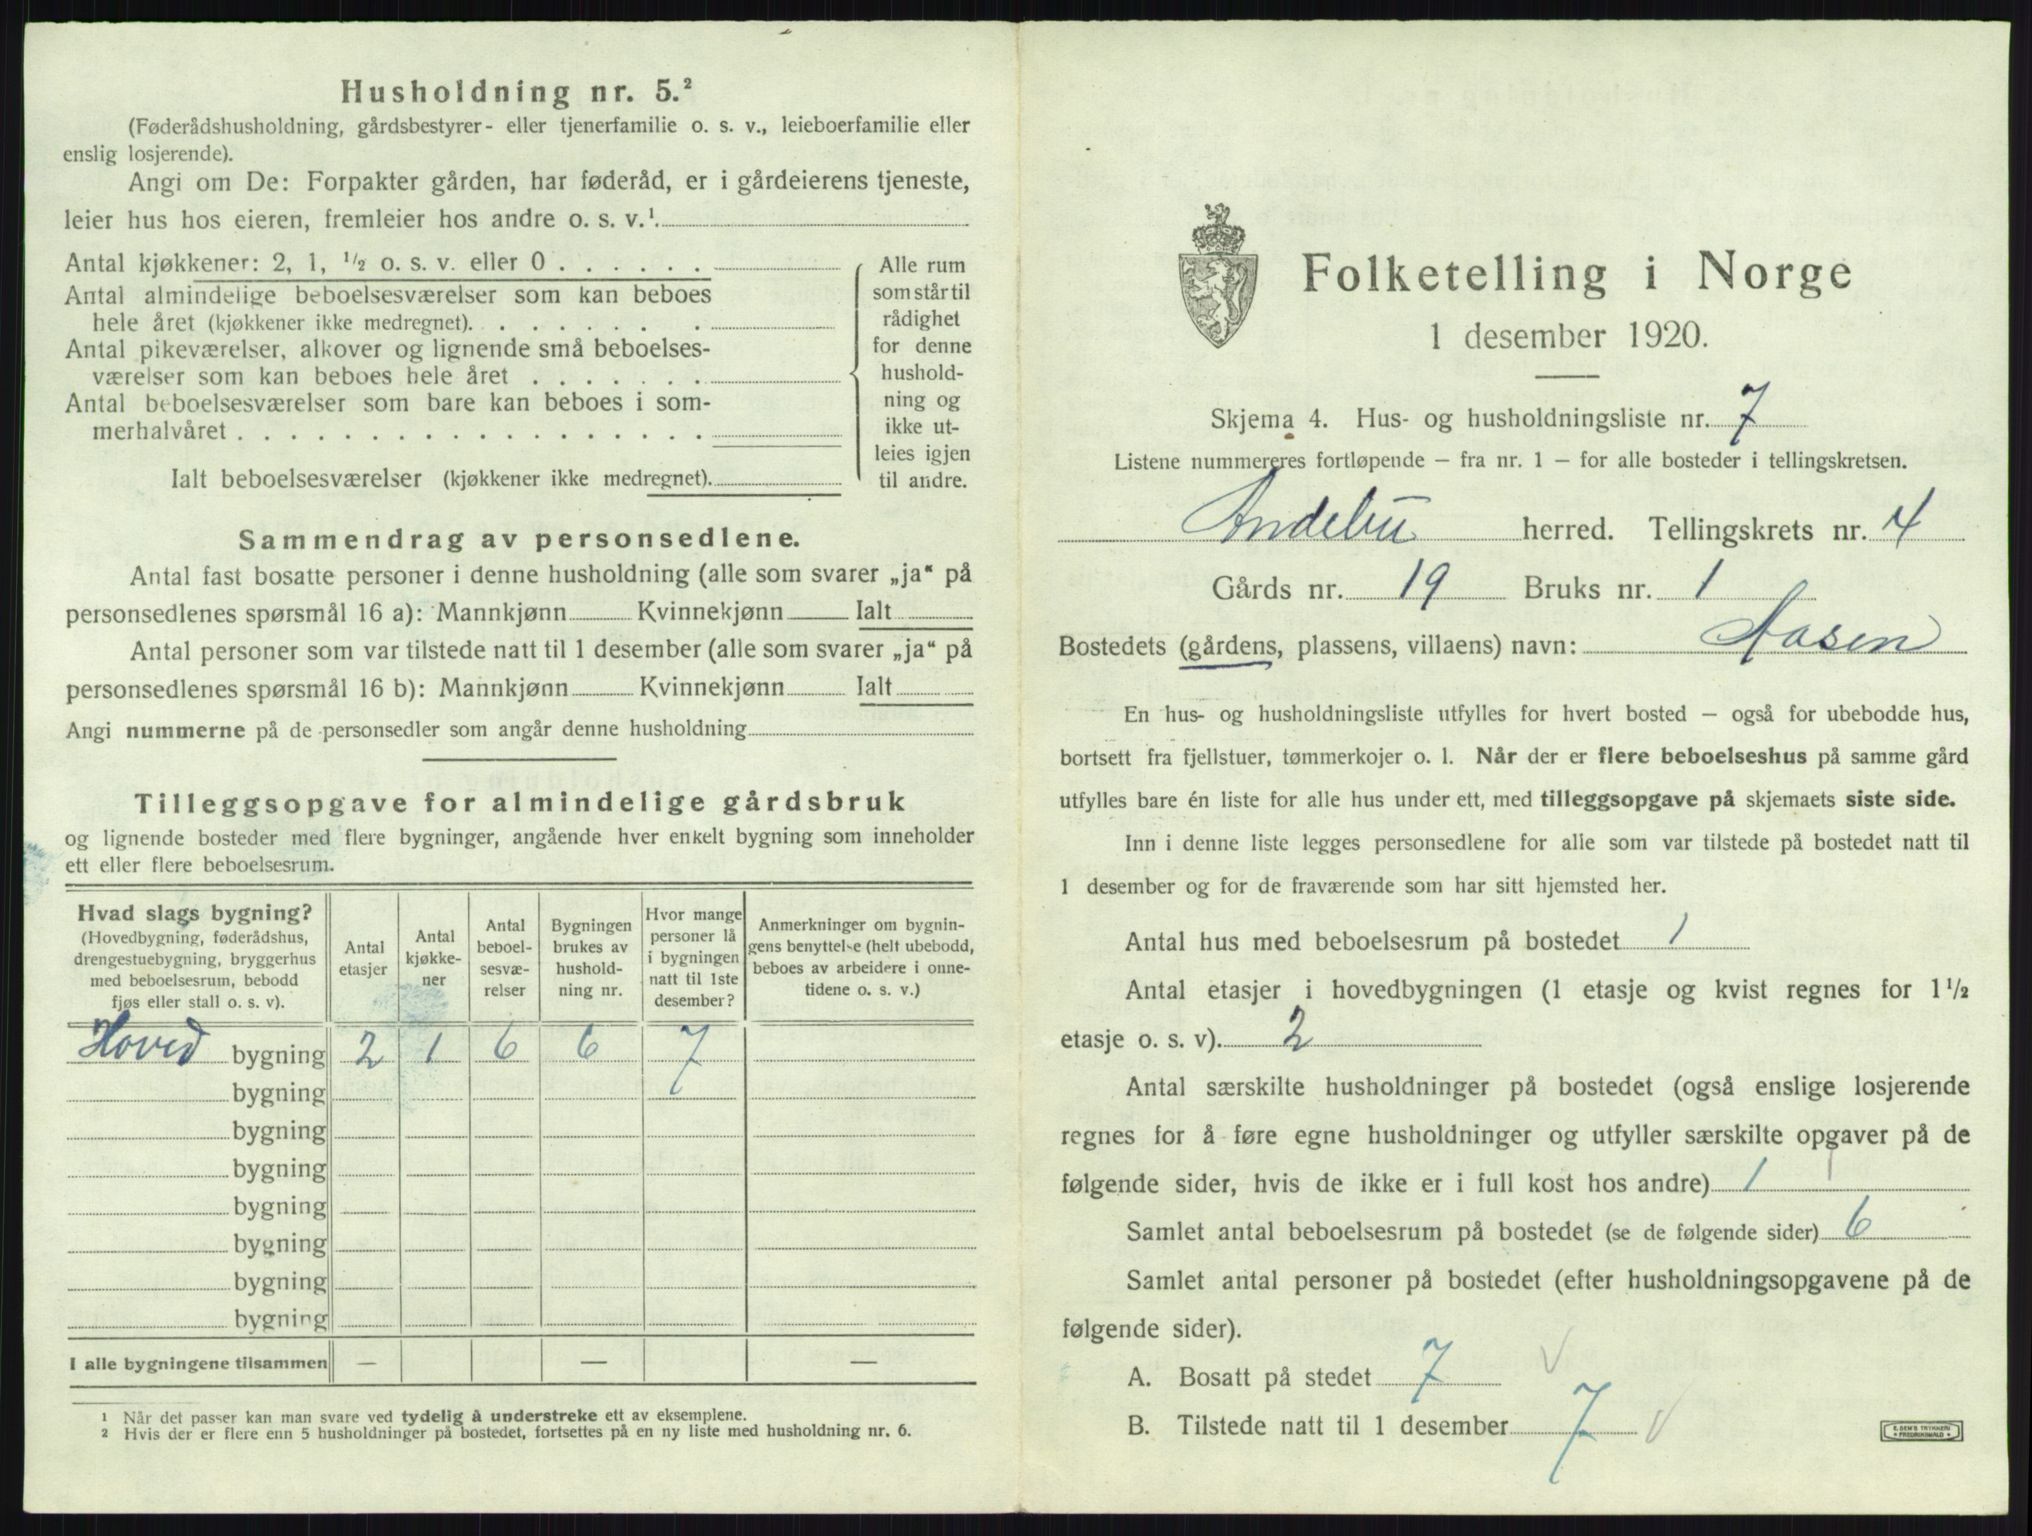 Husholdning nr. 5.²
(Føderådshusholdning, gårdsbestyrer- eller tjenerfamilie o. s. v., leieboerfamilie eller
enslig losjerende).
Angi om De: Forpakter gården, har føderåd, er i gårdeierens tjeneste,
leier hus hos eieren, fremleier hos andre o. s. v.¹
Antal kjøkkener: 2, 1, ½ o. s. v. eller 0
Antal almindelige beboelsesværelser som kan beboes
hele året (kjøkkener ikke medregnet).
Antal pikeværelser, alkover og lignende små beboelses-
værelser som kan beboes hele året
Antal beboelsesværelser som bare kan beboes i som-
merhalvåret
Ialt beboelsesværelser (kjøkkener ikke medregnet).
Alle rum
som står til
rådighet
for denne
hushold-
ning og
ikke ut-
leies igjen
til andre.
Sammendrag av personsedlene.
Antal fast bosatte personer i denne husholdning (alle som svarer „ja“ på
personsedlenes spørsmål 16 a): Mannkjønn Kvinnekjønn Ialt
Antal personer som var tilstede natt til 1 desember (alle som svarer „ja“ på
personsedlenes spørsmål 16 b): Mannkjønn Kvinnekjønn Ialt
Angi nummerne på de personsedler som angår denne husholdning
Tilleggsopgave for almindelige gårdsbruk
og lignende bosteder med flere bygninger, angående hver enkelt bygning som inneholder
ett eller flere beboelsesrum.
Hvad slags bygning?
(Hovedbygning, føderådshus,
drengestuebygning, bryggerhus
med beboelsesrum, bebodd
fjøs eller stall o. s. v).
Antal
etasjer
Antal
kjøkke-
ner
Antal
beboel-
sesvæ-
relser
Bygningen
brukes av
hushold-
ning nr.
Hvor mange
personer lå
i bygningen
natt til 1ste
desember?
Anmerkninger om bygnin-
gens benyttelse (helt ubebodd,
beboes av arbeidere i onne-
tidene o. s. v.)
Hoved bygning 2 1 6 6 7
bygning
bygning
bygning
bygning
bygning
bygning
bygning
I alle bygningene tilsammen — — —
¹ Når det passer kan man svare ved tydelig å understreke ett av eksemplene.
² Hvis der er flere enn 5 husholdninger på bostedet, fortsettes på en ny liste med husholdning nr. 6.
Folketelling i Norge
1 desember 1920.
Skjema 4. Hus- og husholdningsliste nr. 7
Listene nummereres fortløpende — fra nr. 1 — for alle bosteder i tellingskretsen.
Andebu herred. Tellingskrets nr. 4
Gårds nr. 19 Bruks nr. 1
Bostedets (gårdens, plassens, villaens) navn: Aasen
En hus- og husholdningsliste utfylles for hvert bosted — også for ubebodde hus,
bortsett fra fjellstuer, tømmerkojer o. l. Når der er flere beboelseshus på samme gård
utfylles bare én liste for alle hus under ett, med tilleggsopgave på skjemaets siste side.
Inn i denne liste legges personsedlene for alle som var tilstede på bostedet natt til
1 desember og for de fraværende som har sitt hjemsted her.
Antal hus med beboelsesrum på bostedet 1
Antal etasjer i hovedbygningen (1 etasje og kvist regnes for 1½
etasje o. s. v). 2
Antal særskilte husholdninger på bostedet (også enslige losjerende
regnes for å føre egne husholdninger og utfyller særskilte opgaver på de
følgende sider, hvis de ikke er i full kost hos andre) 1
Samlet antal beboelsesrum på bostedet (se de følgende sider) 6
Samlet antal personer på bostedet (efter husholdningsopgavene på de
følgende sider).
A. Bosatt på stedet 7
B. Tilstede natt til 1 desember 7